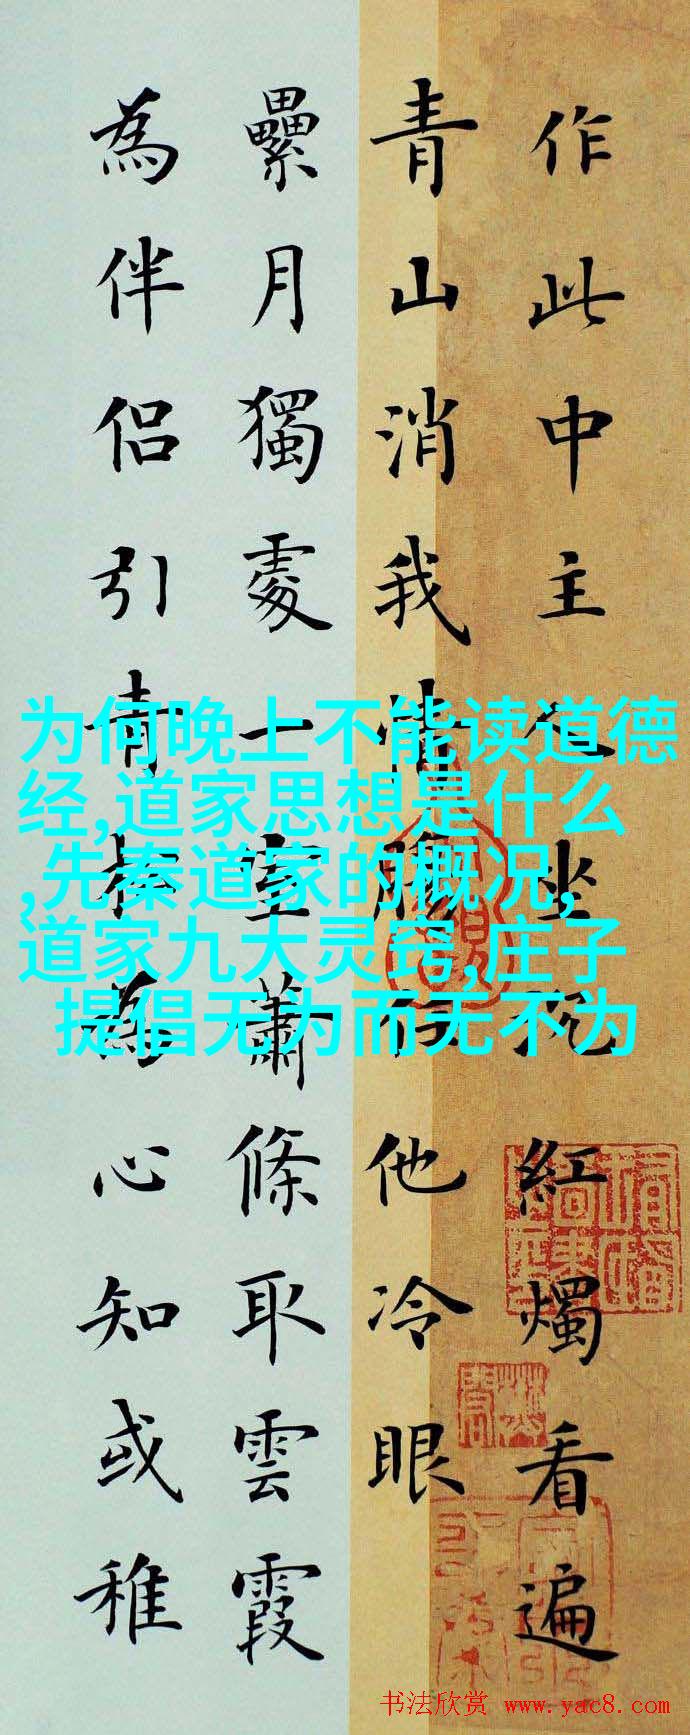 作此中主人坐死紅燭看遍
青山消我情腸任他冷眼
纍月獨處一室蕭條取雲霞
為伴侶引青松為心知或稚
为何晚上不能读道德
经,道家思想是什么
,先秦道家的概况,
道家九大灵窍,庄子
提倡无为而无不为
书法欣赏 www.yac8.com